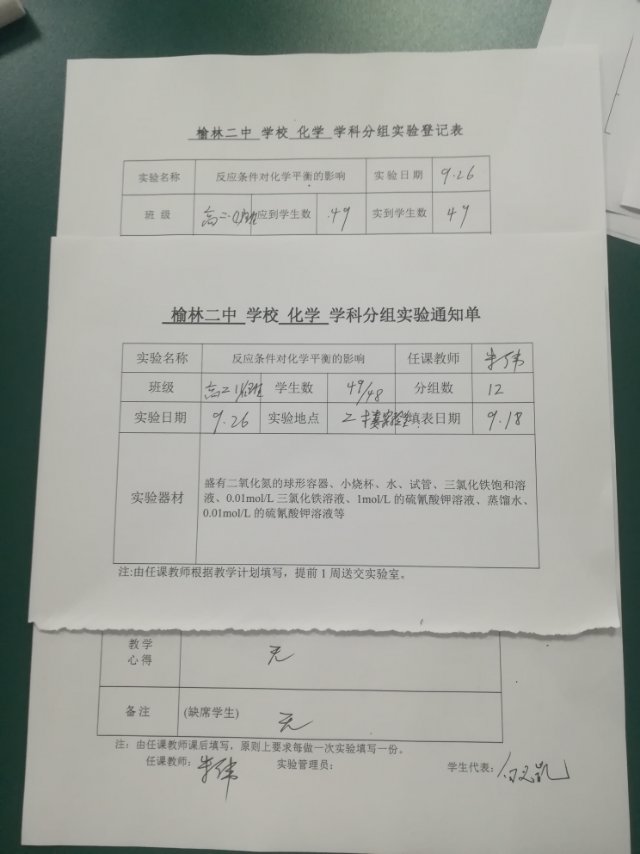 榆林二中 学校 化学 学科分组实验登记表
实验名称 反应条件对化学平衡的影响 实验日期 9.26
班 级 高二 应到学生数 49 实到学生数 49
榆林二中 学校 化学 学科分组实验通知单
实验名称 反应条件对化学平衡的影响 任课教师 朱伟
班级 高二 学生数 49/48 分组数 12
实验日期 9.26 实验地点 填表日期 9.18
实验器材
盛有二氧化氮的球形容器、小烧杯、水、试管、三氯化铁饱和溶
液、0.01mol/L 三氯化铁溶液、1mol/L 的硫氰酸钾溶液、蒸馏水、
0.01mol/L 的硫氰酸钾溶液等
注:由任课教师根据教学计划填写，提前 1 周送交实验室。
教学
心得
无
备注 (缺席学生) 无
注：由任课教师课后填写，原则上要求每做一次实验填写一份。
任课教师：朱伟 实验管理员： 学生代表：